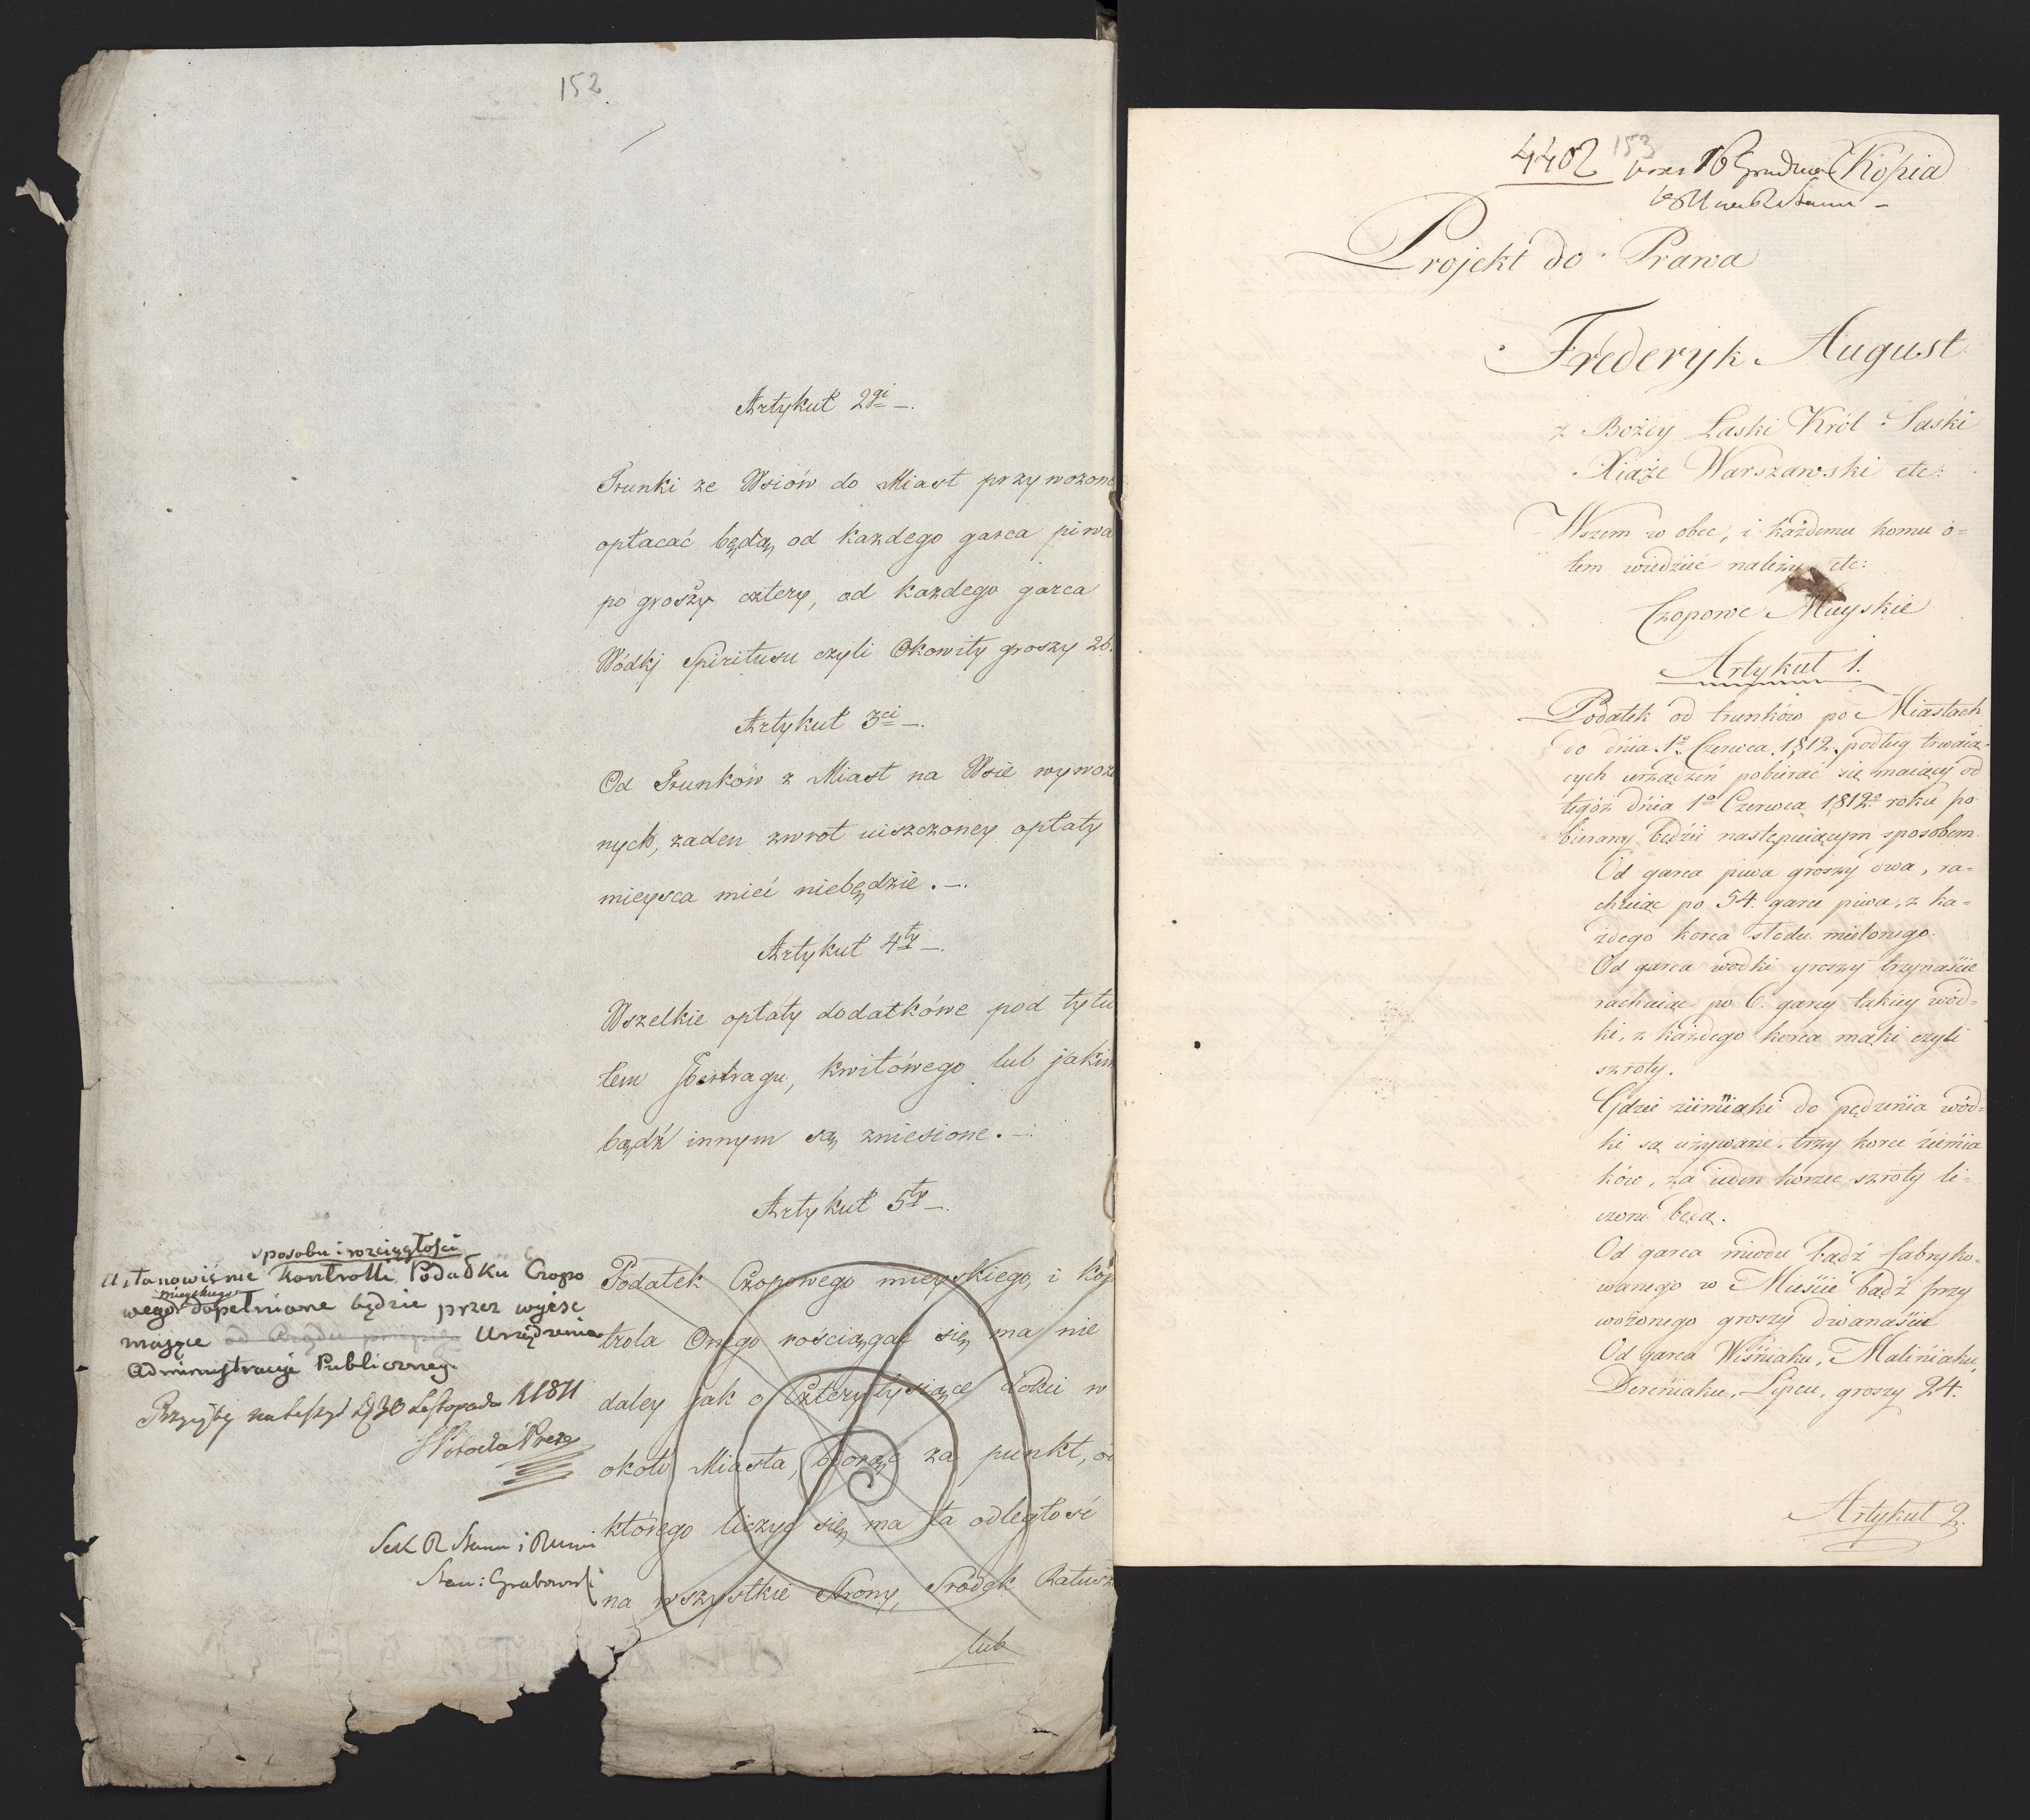 152
Artykuł 2gi —.
Trunki ze Wsiów do Miast przywozone
opłacać będą, od kazdego garca piwa
po groszy cztery, od kazdego garca
Wódkj Spiritusu czyli Okowity groszy 26.
Artykuł 3ci —.
Od Trunków z Miast na Wsie wywozo
nych, zaden zwrot uiszczoney opłaty
mieysca mieć niebędzie. —.
Artykuł 4ty —.
Wszelkie opłaty dodatkówe pod tytu
łem kwitówego lub jakim
bądź innym są zniesione. —
Artykuł 5ty —.
Podatek Czopowego mieyskiego, i kón
trola Onego rościągać się ma nie
daley jak o Cztery tysiące Łokci w
około Miasta, biorąc za punkt, od
którego liczyć się ma ta odległość
na wszystkie strony, Srodek Ratusza
lub
sposobu i rozciągłości
Ustanowienie Kontrolli Podatku Czopo
mieyskiego
wego dopełniane będzie przez wyiść
maiące Urządzenia
Administracyi Publiczney.
Przyięty na Sessyi d 30 Listopada 1811
Sek R Stanu i
Stan: Grabowski
153
4402 16 Grudnia Kopia
Projekt do Prawa
Frederyk August
z Bożey Łaski Król Saski
Xiąże Warszawski etc:
Wszem w obec, i każdemu komu o=
tem wiedzieć należy etc:
Czopowe Mieyskie
Artykuł 1.
Podatek od trunków po Miastach
do dnia 1o Czerwca 1812. podług trwaią=
cych urządzeń pobierać się maiący od
tegóż dnia 1o Czerwca 1812o roku po
bierany będzie następuiącym sposobem
Od garca piwa groszy dwa, ra=
chuiąc po 54. garcy piwa, z ka=
żdego korca słodu mielonego.
Od garca wodki groszy trzynaście
rachuiąc po 6. garcy takiey wód=
ki, z każdego korca mąki czyli
szroty.
Gdzie ziemiaki do pędzenia wód=
ki są używane, trzy korce ziemia
ków, za ieden korzec szroty li=
czone będą.
Od garca miodu bądź fabryko=
wanego w Mieście bądź przy
wożonego groszy dwanaście
Od garca Wiśniaku, Maliniaku,
Dereniaku, Lipcu, groszy 24.
Artykuł 2.